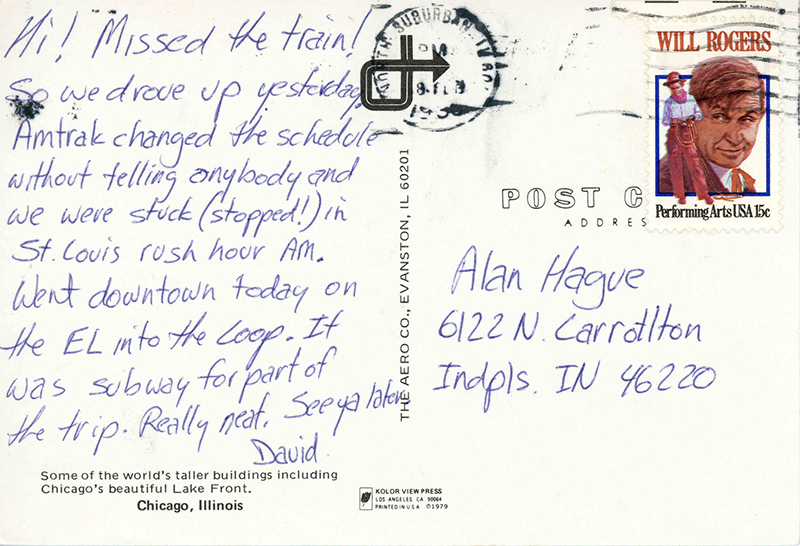 Hi! Missed the train!
So we drove up yesterday.
Amtrak changed the schedule
without telling anybody and
we were stuck (stopped!) in
St. Louis rush hour AM.
Went downtown today on
the EL into the Loop. It
was subway for part of
the trip. Really neat. See ya later
David
Some of the world's taller buildings including
Chicago's beautiful Lake Front.
Chicago, Illinois
THE AERO CO., EVANSTON, IL 60201
KOLOR VIEW PRESS
LOS ANGELES, CA 90064
PRINTED IN USA ©1979
SUBURBAN, IL
PM
WILL ROGERS
Performing Arts USA 15c
POST C
ADDRES
Alan Hague
6122 N. Carrotlton
Indpls. IN 46220